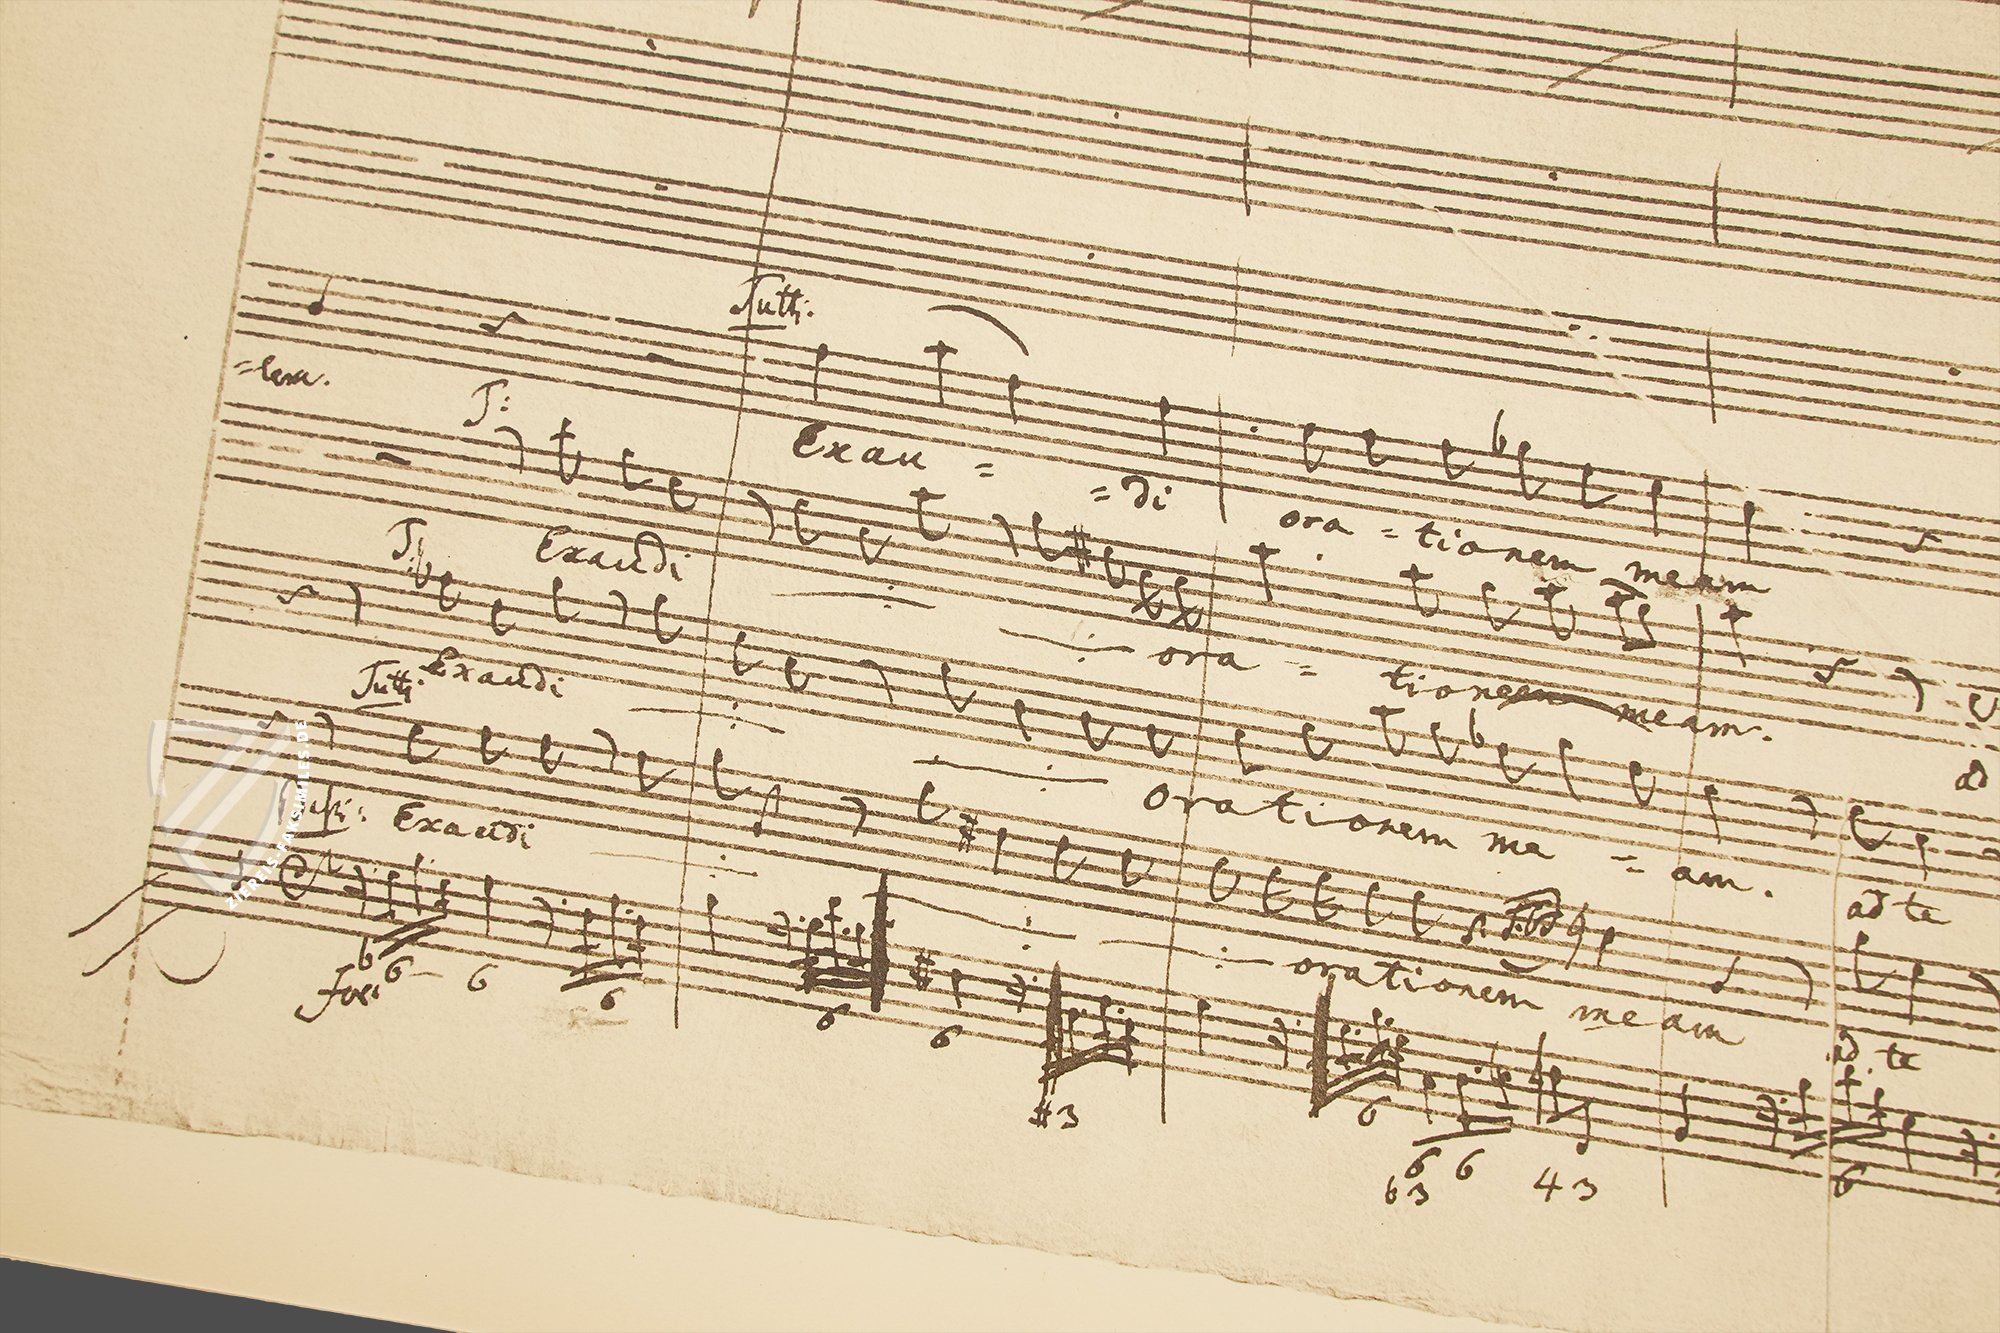 Tutti.
=lem.
T:
Exau = = di
ora = tionem meam
T:
Exaudi
ora = tionem meam.
ad
Tutti
Exaudi
Orationem me = am.
ad te
Tutti: Exaudi
orationem meam
ad te
b 6 — 6 6 6 6 #3 6 6 6 4 3 6
for: b3
ZIEREIS FAKSIMILES.DE